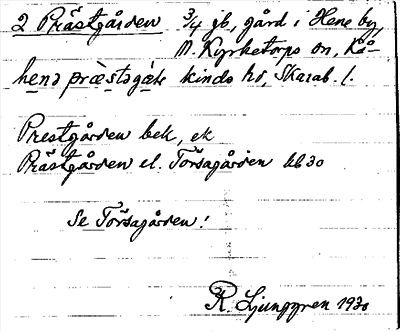 2 Prästgården 3/4 gb, gård i Hene by,
N. Kyrketorps sn, Kå-
hens præstagàde kinds hd, Skarab. l.
Prestgården bek, ek
Prästgården el. Torsagården bb 30
Se Torsagården!
R. Ljunggren 1930